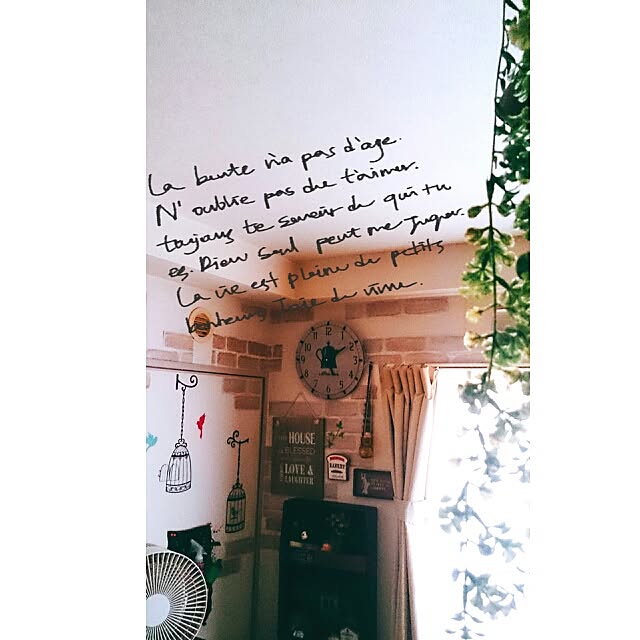 La beute n'a pas d'age.
N' oublie pas de t'aimer.
toujours te souvenir de qui tu
es. Dieu seul peut me Juger.
La vie est pleine de petits
bonheurs Joie de vivre.
12
HOUSE
BLESSED
LOVE &
LAUGHTER
BAKERY